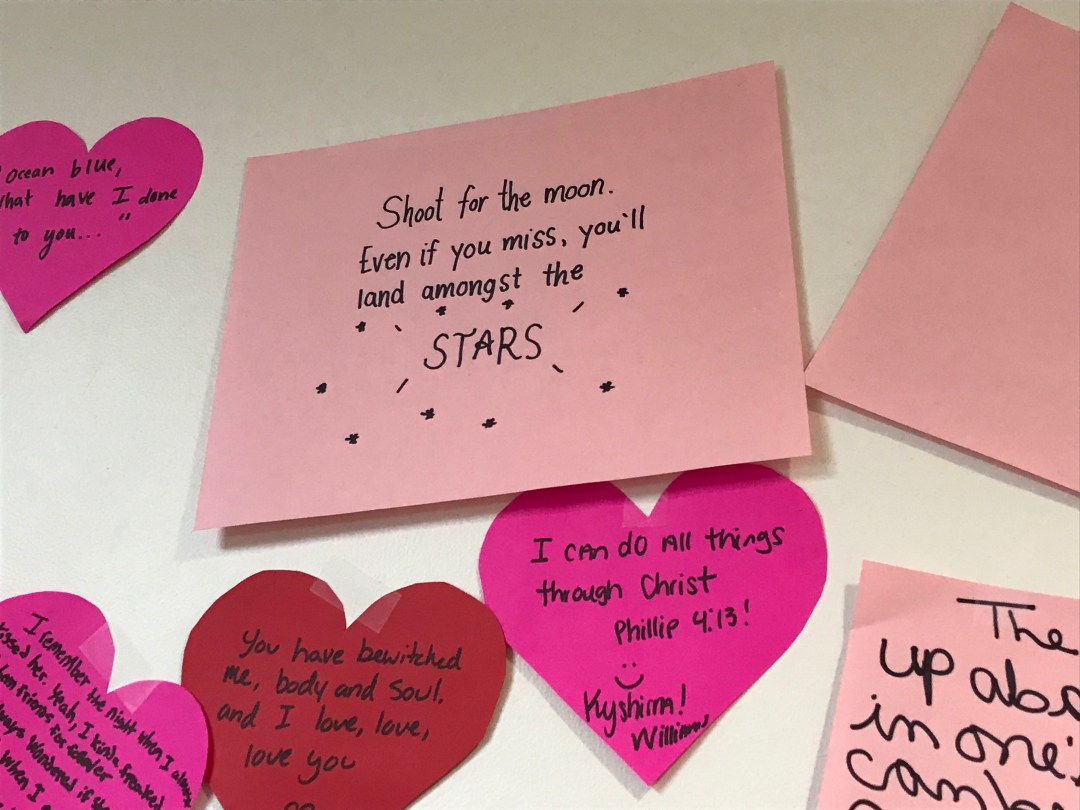 ocean blue,
what have I done
to you... "
Shoot for the moon.
Even if you miss, you'll
land amongst the
STARS
I can do All things
through Christ
Phillip 4:13!
Kyshirra!
Williams
You have bewitched
me, body and soul.
and I love, love,
love you
I remember the night when I
kissed her. Yeah, I kinda freaked
friends for
always wondered if
when I
The
up
in one's